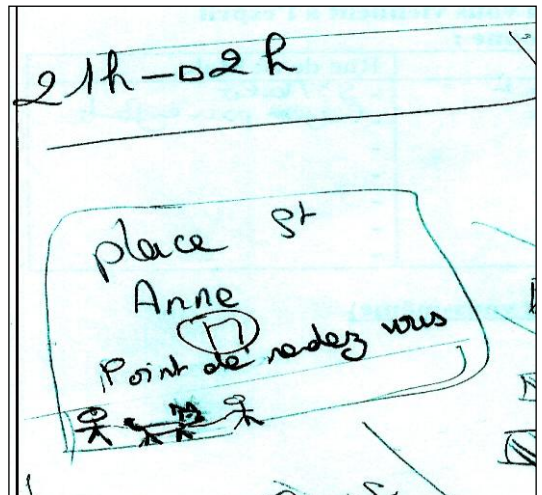 21h-02h
place St
Anne
Point de rendez vous